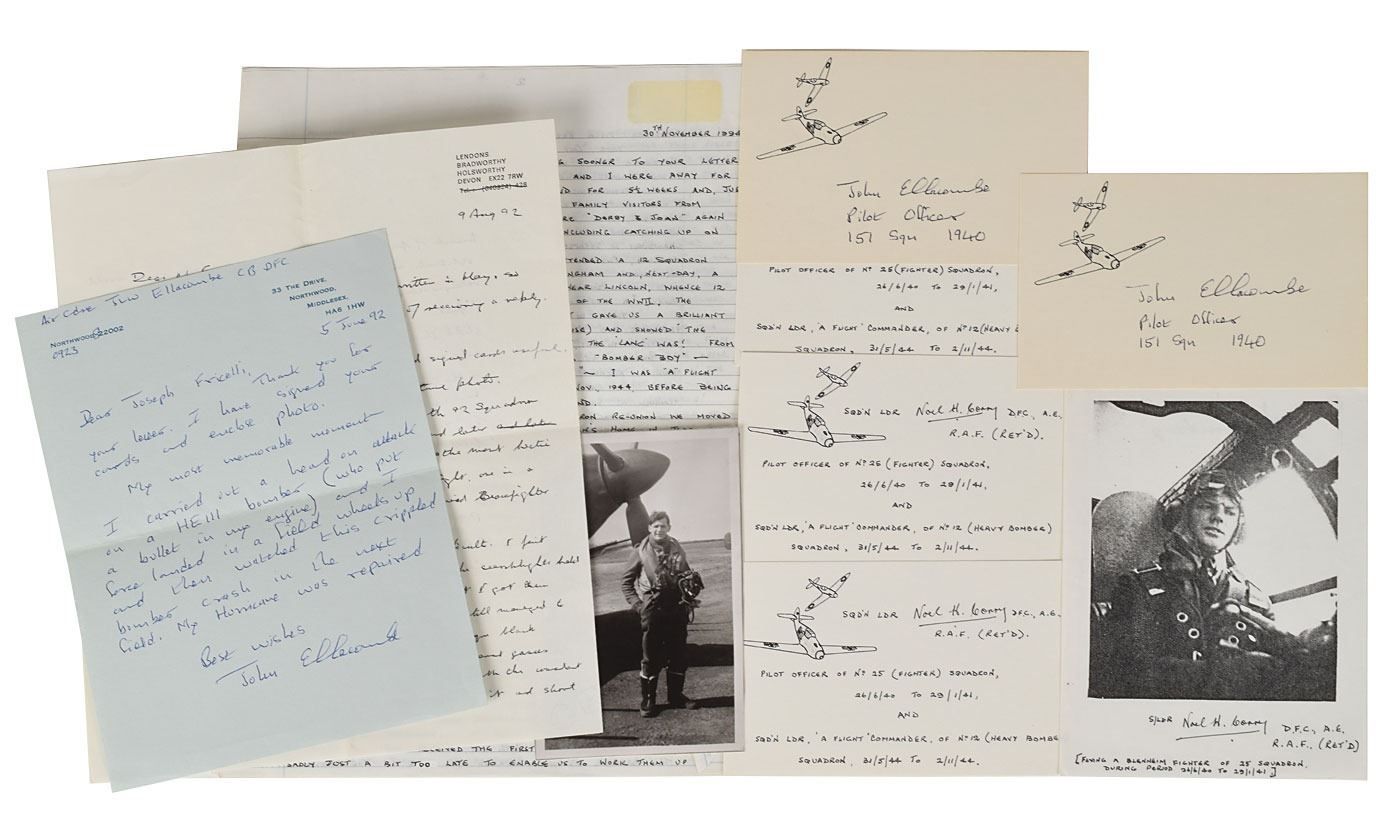 Air Cdre JLW Ellacombe CB DFC
33 THE DRIVE,
NORTHWOOD,
MIDDLESEX,
HA6 1HW
NORTHWOOD 22002
0923
5 June 92
Dear Joseph Fricelli,
Thank you for
your letter. I have signed your
cards and enclose photo.
My most memorable moment
I carried out a head on attack
on a HE111 bomber (who put
a bullet in my engine) and I
force landed in a field wheels up
and then watched this crippled
bomber crash in the next
field. My Hurricane was repaired
Best wishes
John Ellacombe
LENDONS
BRADWORTHY
HOLSWORTHY
DEVON EX22 7RW
9 Aug 92
written in May, so
of receiving a reply.
signed cards useful.
photo.
92 Squadron
and later
the most hectic
one in a
Beaufighter
I first
the searchlights held
I got then
still managed to
black
and gasses
in and shoot
30TH NOVEMBER 199
SOONER TO YOUR LETTER
AND I WERE AWAY FOR
FOR 5½ WEEKS AND, JUS
FAMILY VISITORS FROM
"DARBY & JOAN" AGAIN
INCLUDING CATCHING UP ON
TENDED A 12 SQUADRON
NGHAM AND, NEXT-DAY, A
EAR LINCOLN, WHENCE 12
OF THE WWII, THE
GAVE US A BRILLIANT
AND SHOWED THE
THE 'LANC' WAS! FROM
"BOMBER BOY" —
I WAS "A" FLIGHT
NOV., 1944, BEFORE BEING
RON RE-UNION WE MOVED
HOME IN
THE FIRST
SADLY JUST A BIT TOO LATE TO ENABLE US TO WORK THEM UP
John Ellacombe
Pilot Officer
151 Sqn 1940
PILOT OFFICER OF Nº 25 (FIGHTER) SQUADRON,
26/6/40 TO 29/1/41,
AND
SQD'N LDR, 'A FLIGHT' COMMANDER, OF Nº 12 (HEAVY B
SQUADRON, 31/5/44 TO 2/11/44.
SQD'N LDR Noel H. Corry D.F.C., A.E.,
R.A.F. (RET'D).
PILOT OFFICER OF Nº 25 (FIGHTER) SQUADRON,
26/6/40 TO 29/1/41,
AND
SQD'N LDR, 'A FLIGHT' COMMANDER, OF Nº 12 (HEAVY BOMBER)
SQUADRON, 31/5/44 TO 2/11/44.
SQD'N LDR Noel H. Corry D.F.C., A.E.
R.A.F. (RET'D).
PILOT OFFICER OF Nº 25 (FIGHTER) SQUADRON,
26/6/40 TO 29/1/41,
AND
SQD'N LDR, 'A FLIGHT' COMMANDER, OF Nº 12 (HEAVY BOMBE
SQUADRON, 31/5/44 TO 2/11/44.
John Ellacombe
Pilot Officer
151 Sqn 1940
S/LDR Noel H. Corry D.F.C., A.E.
R.A.F., (RET'D)
[FLYING A BLENHEIM FIGHTER OF 25 SQUADRON,
DURING PERIOD 26/6/40 TO 29/1/41]